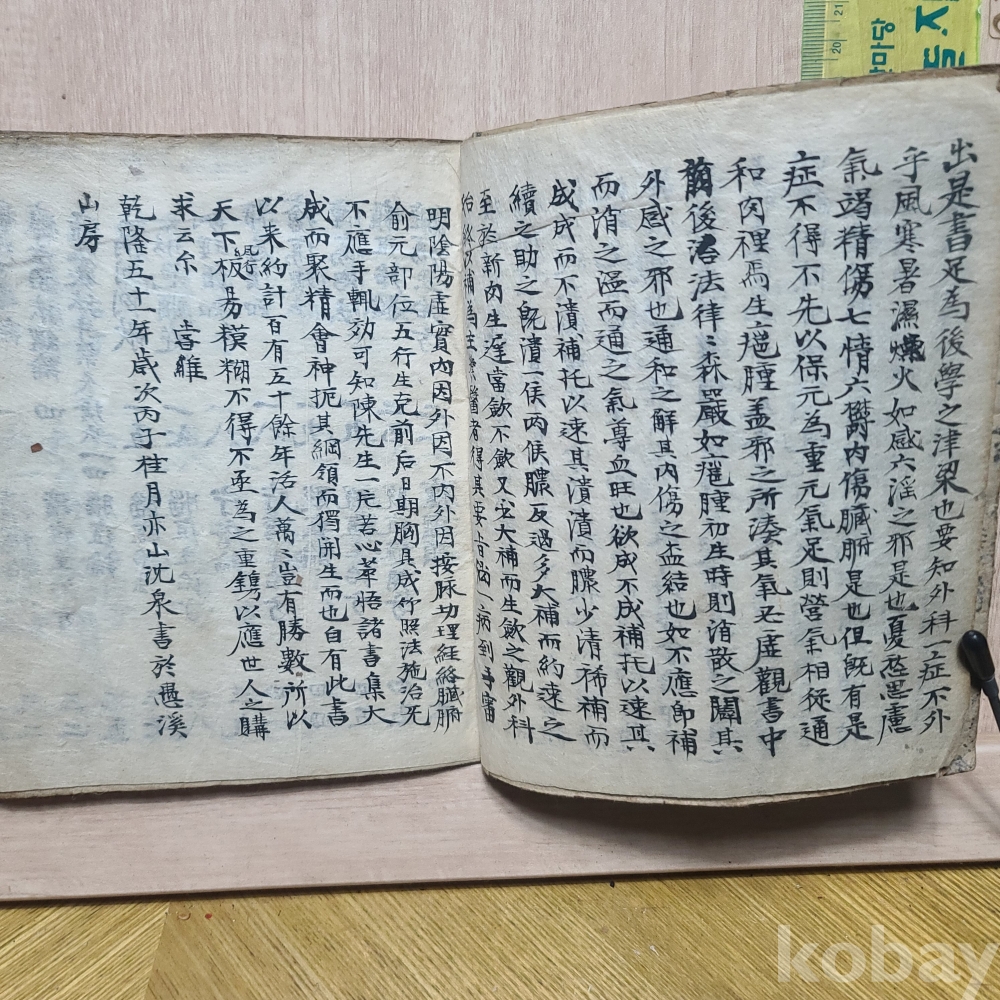 出是書足為後學之津梁也要知外科一症不外
乎風寒暑濕燥火如感六淫之邪是也憂愁思慮
氣竭精傷七情六欝內傷臟腑是也但旣有是
症不得不先以保元為重元氣足則營氣相從通
和肉裡焉生瘡腫盖邪之所湊其氣必虛觀書中
前後治法律〻森嚴如瘡腫初生時則消散之闢其
外感之邪也通和之解其內傷之盍結也如不應卽補
而消之溫而通之氣尊血旺也欲成不成補托以速其
成成而不潰補托以速其潰潰而膿少清稀補而
續之助之旣潰一侯两候膿反過多大補而約速之
至於新肉生遅當歛不歛又宜大補而生歛之觀外科
始終以補為主業醫者得其要旨臨一病到手審
明陰陽虛實內因外因不內外因按脉切理経絡臟腑
俞元部位五行生克前后日期胸具成竹照法施治无
不應手輒効可知陳先生一片苦心萃悟諸書集大
成而聚精會神扼其綱領而獨開生而也自有此書
以来約計百有五十餘年活人萬〻豈有勝數所以
天下板易模糊不得不亟為之重鐫以應世人之購
求云尒 旹維
乾隆五十一年歳次丙子桂月亦山沈泉書於惠溪
山房
20
21
kobay